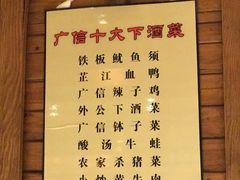 广信十大下酒菜
铁板鱿鱼须
芷江血鸭
广信辣子鸡
外公下酒菜
广信钵子菜
酸汤牛蛙
农家杀猪菜
小炒黄牛肉